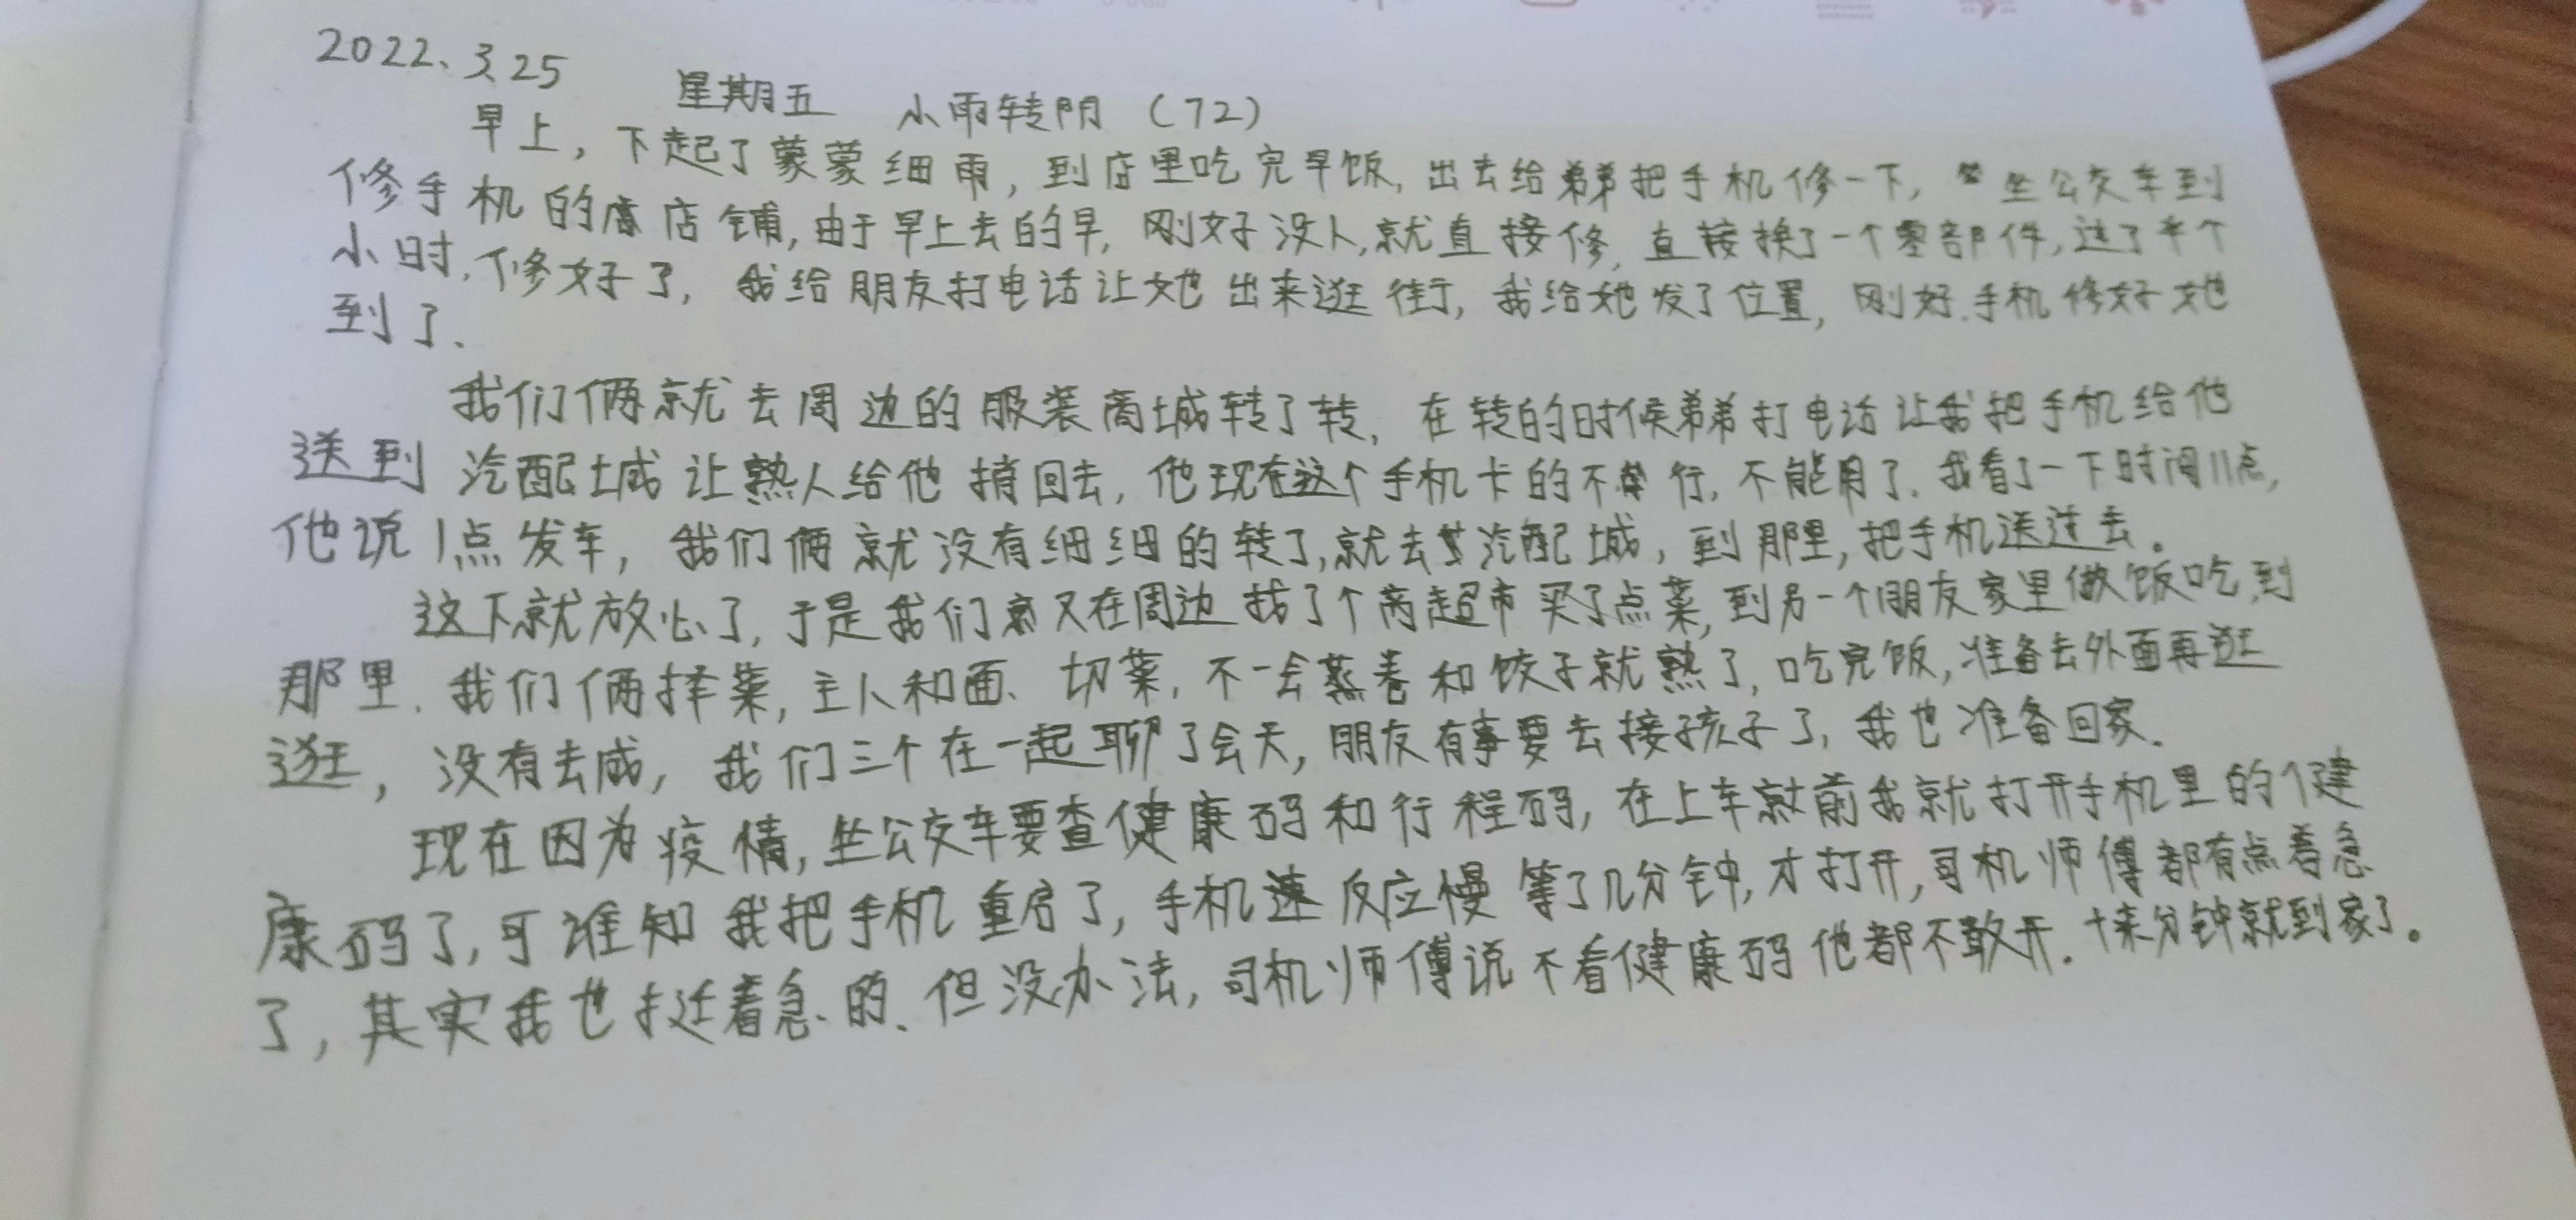 2022、3、25 星期五 小雨转阴（72）
早上，下起了蒙蒙细雨，到店里吃完早饭，出去给弟弟把手机修一下，坐公交车到
修手机的店铺，由于早上去的早，刚好没人，就直接修，直接换了一个零部件，过了半个
小时，修好了，我给朋友打电话让她出来逛街，我给她发了位置，刚好手机修好她
到了、
我们俩就去周边的服装商城转了转，在转的时候弟弟打电话让我把手机给他
送到汽配城让熟人给他捎回去，他现在这个手机卡的不行，不能用了、我看了一下时间11点，
他说1点发车，我们俩就没有细细的转了，就去汽配城，到那里，把手机送过去。
这下就放心了，于是我们又在周边找了个商超市买了点菜，到另一个朋友家里做饭吃，到
那里、我们俩择菜，主人和面、切菜，不一会蒸卷和饺子就熟了，吃完饭，准备去外面再逛
逛，没有去成，我们三个在一起聊了会天，朋友有事要去接孩子了，我也准备回家、
现在因为疫情，坐公交车要查健康码和行程码，在上车前我就打开手机里的健
康码了，可谁知我把手机重启了，手机反应慢等了几分钟，才打开，司机师傅都有点着急
了，其实我也挺着急的、但没办法，司机师傅说不看健康码他都不敢开、十来分钟就到家了。